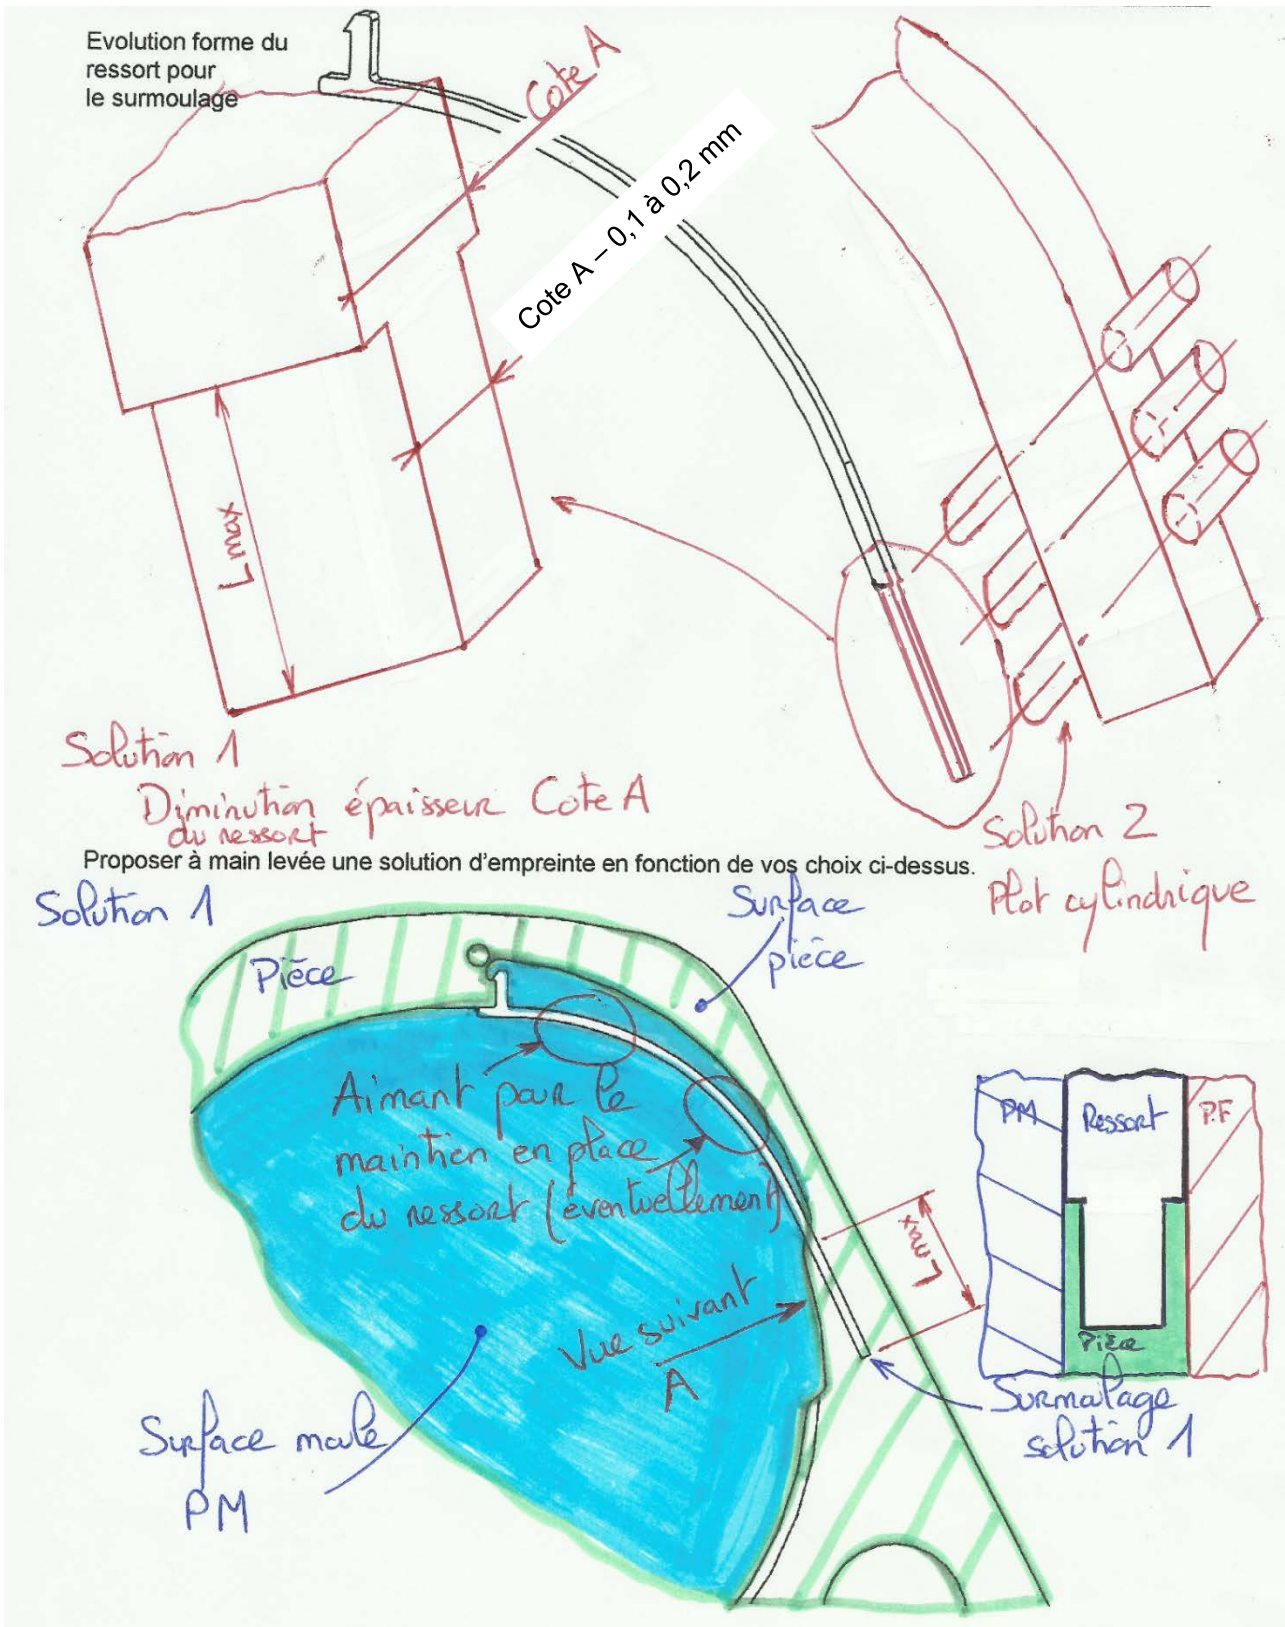 Evolution forme du
ressort pour
le surmoulage
Cote A
Cote A – 0,1 à 0,2 mm
L max
Solution 1
Diminution épaisseur Cote A
du ressort
Solution 2
Plot cylindrique
Proposer à main levée une solution d'empreinte en fonction de vos choix ci-dessus.
Solution 1
Surface
pièce
Pièce
1
Aimant pour le
maintien en place
du ressort (éventuellement)
L max
Vue suivant
A
PM
Ressort
P.F
Pièce
Surmoulage
solution 1
Surface moule
PM